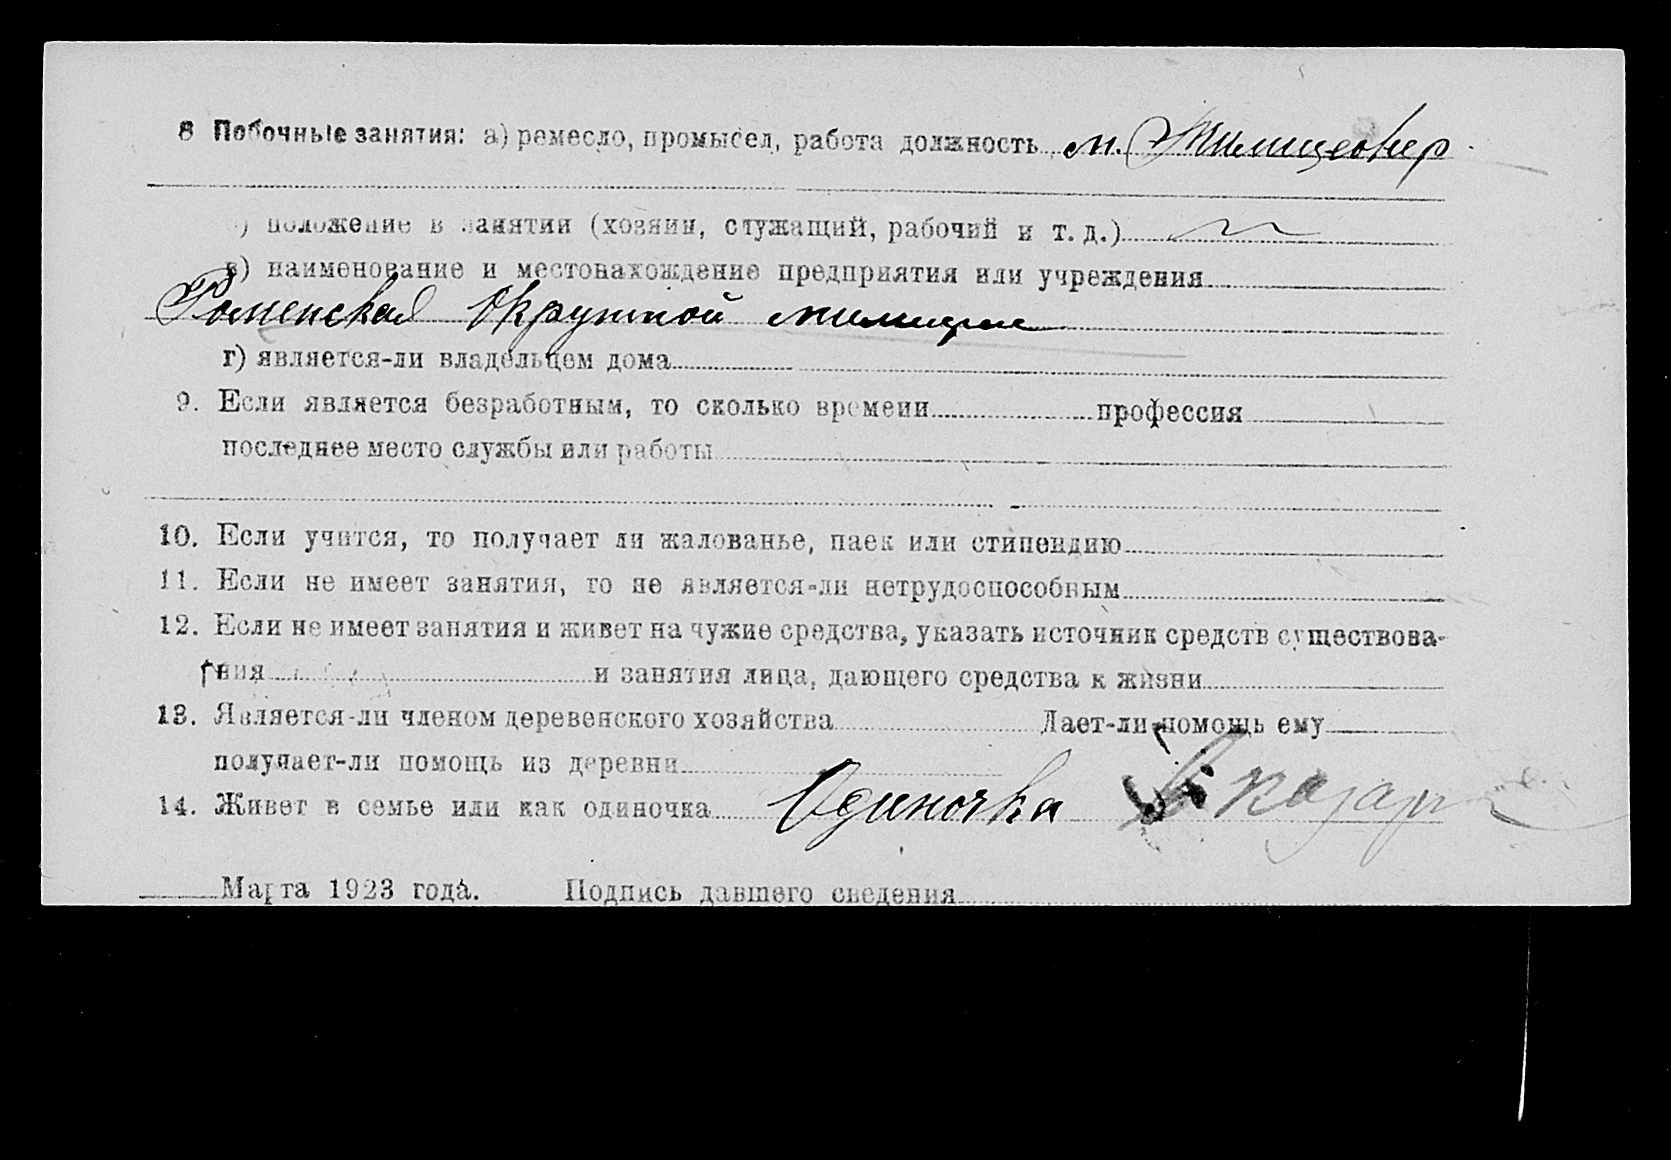 8 Побочные занятия: а) ремесло, промысел, работа должность м. Милиционер
) положение в занятии (хозяин, служащий, рабочий и т. д.)
в) наименование и местонахождение предприятия или учреждения
Роменская Окружной милиции
г) является-ли владельцем дома
9. Если является безработным, то сколько времени профессия
последнее место службы или работы
10. Если учится, то получает ли жалованье, паек или стипендию
11. Если не имеет занятия, то не является-ли нетрудоспособным
12. Если не имеет занятия и живет на чужие средства, указать источник средств существова-
ния и занятия лица, дающего средства к жизни
13. Является-ли членом деревенского хозяйства Дает-ли помощь ему
получает-ли помощь из деревни
14. Живет в семье или как одиночка Одиночка
Марта 1923 года. Подпись давшего сведения